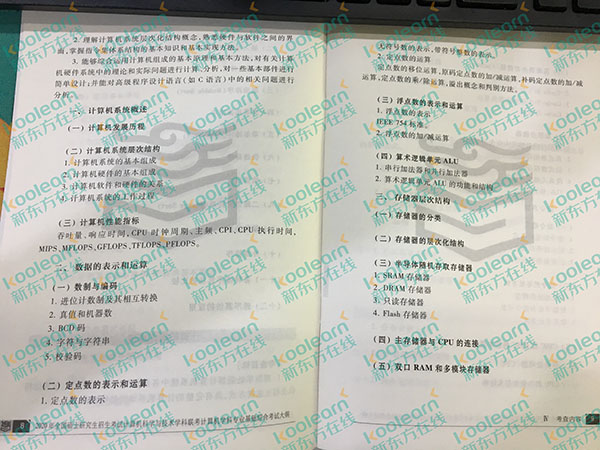 2. 理解计算机系统层次化结构概念,熟悉硬件与软件之间的界
面,掌握指令集体系结构的基本知识和基本实现方法。
3. 能够综合运用计算机组成的基本原理和基本方法,对有关计算
机硬件系统中的理论和实际问题进行计算、分析,对一些基本部件进行
简单设计;并能对高级程序设计语言(如C语言)中的相关问题进行
分析。
一、计算机系统概述
(一)计算机发展历程
(二)计算机系统层次结构
1. 计算机系统的基本组成
2. 计算机硬件的基本组成
3. 计算机软件和硬件的关系
4. 计算机系统的工作过程
(三)计算机性能指标
吞吐量、响应时间、CPU时钟周期、主频、CPI、CPU执行时间、
MIPS、MFLOPS、GFLOPS、TFLOPS、PFLOPS。
二、数据的表示和运算
(一)数制与编码
1. 进位计数制及其相互转换
2. 真值和机器数
3. BCD码
4. 字符与字符串
5. 校验码
(二)定点数的表示和运算
1. 定点数的表示
8 2020年全国硕士研究生招生考试计算机科学与技术学科联考计算机学科专业基础综合考试大纲
无符号数的表示,带符号整数的表示。
2. 定点数的运算
定点数的移位运算,原码定点数的加/减运算,补码定点数的加/减
运算,定点数的乘/除运算,溢出概念和判别方法。
(三)浮点数的表示和运算
1. 浮点数的表示
IEEE 754标准。
2. 浮点数的加/减运算
(四)算术逻辑单元ALU
1. 串行加法器和并行加法器
2. 算术逻辑单元ALU的功能和结构
三、存储器层次结构
(一)存储器的分类
(二)存储器的层次化结构
(三)半导体随机存取存储器
1. SRAM存储器
2. DRAM存储器
3. 只读存储器
4. Flash存储器
(四)主存储器与CPU的连接
(五)双口RAM和多模块存储器
Ⅳ 考查内容 9
koolearn
新东方在线